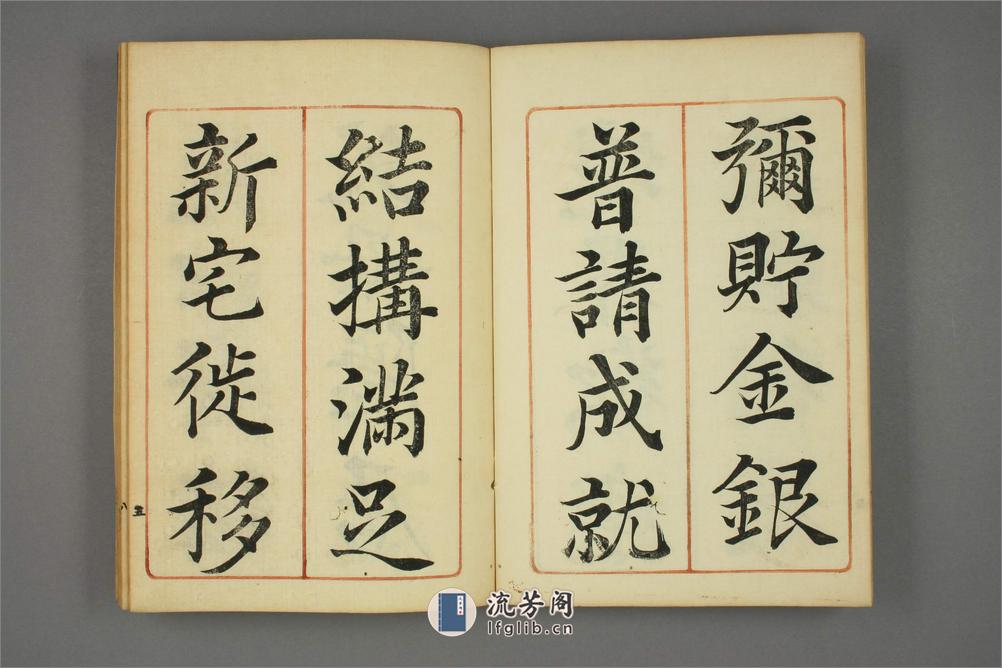 彌貯金銀
普請成就
結構滿足
新宅徙移
五
八
流芳阁
lfglib.cn